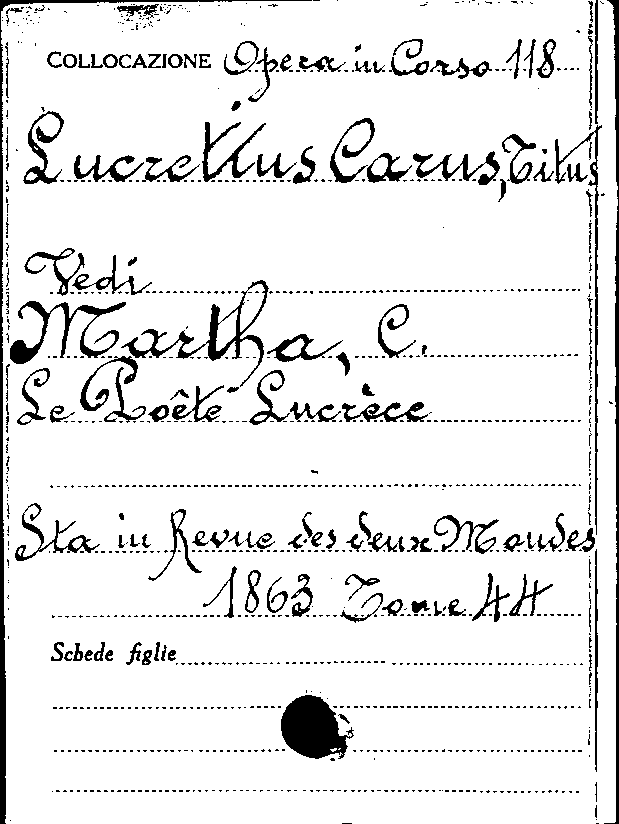 COLLOCAZIONE Opera in Corso 118
Lucretius Carus, Titus
Vedi
Martha, C.
Le Poête Lucrèce
Sta in Revue des deux Mondes
1863 Tome 44
Schede figlie